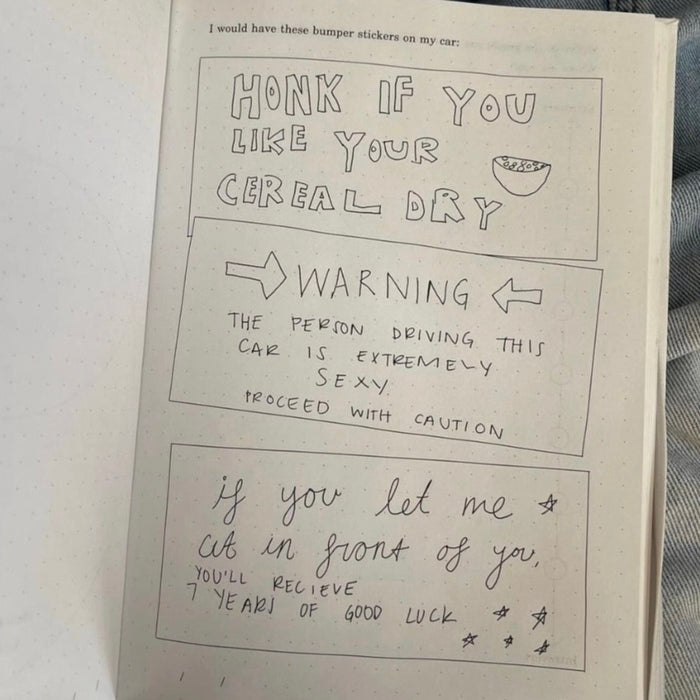 I would have these bumper stickers on my car:
HONK IF YOU
LIKE YOUR
CEREAL DRY
WARNING
THE PERSON DRIVING THIS
CAR IS EXTREMELY
SEXY
PROCEED WITH CAUTION
if you let me
cut in front of you,
YOU'LL RECIEVE
7 YEARS OF GOOD LUCK